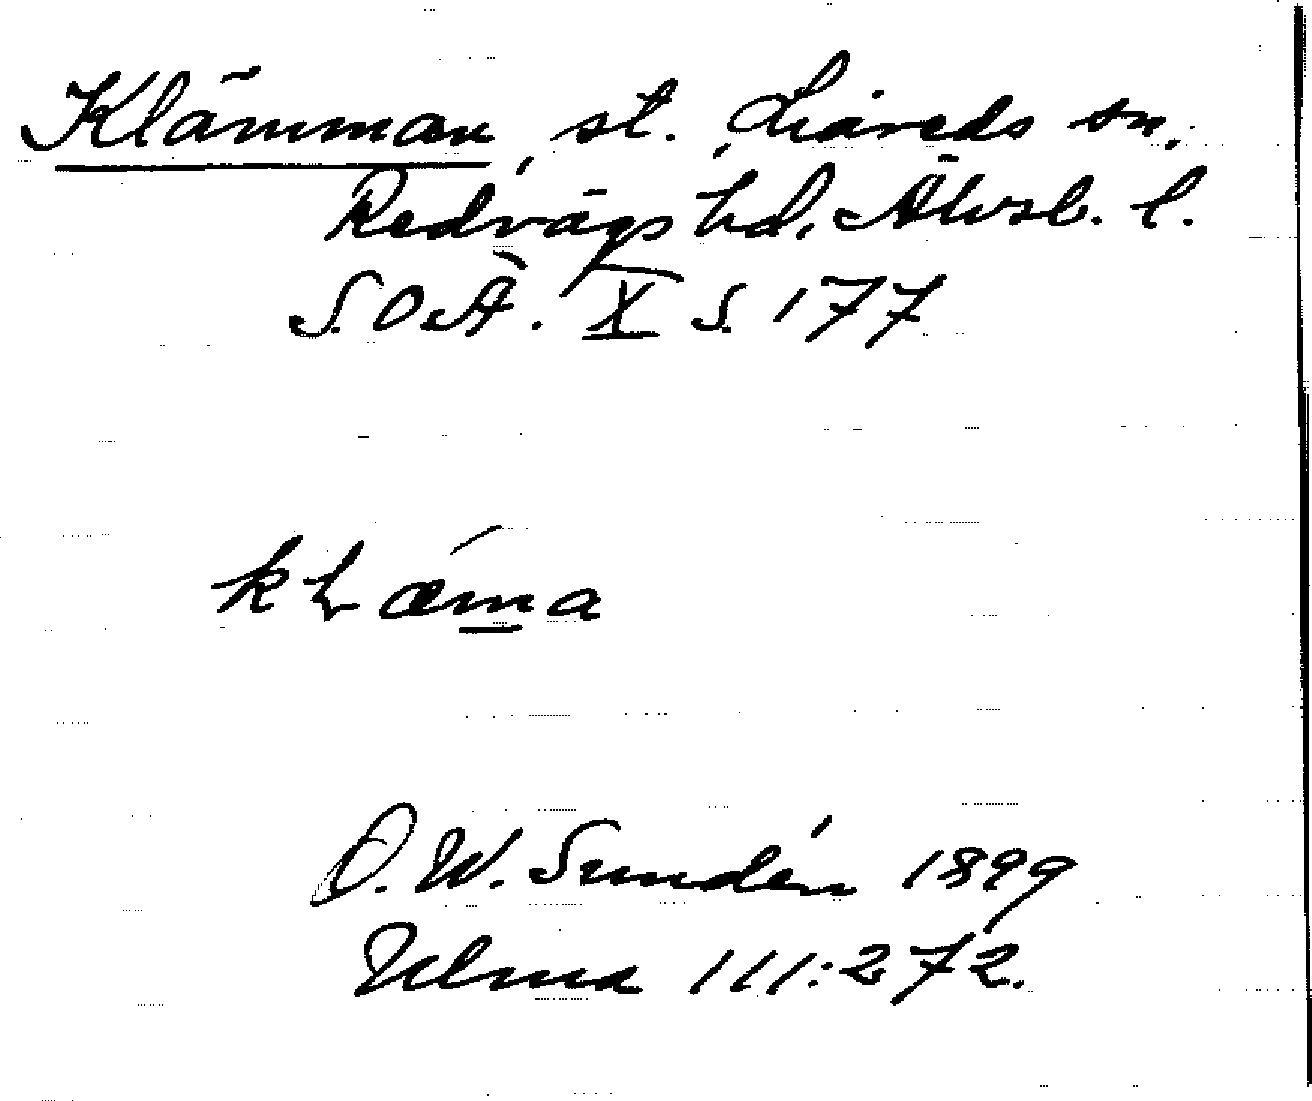 Klämman, st. Liareds sn,
Redvägs hd, Älvsb. l.
S.O.Ä. X s. 177
kLæ´ma
O. W. Sundén 1899
Ulma 111:272.